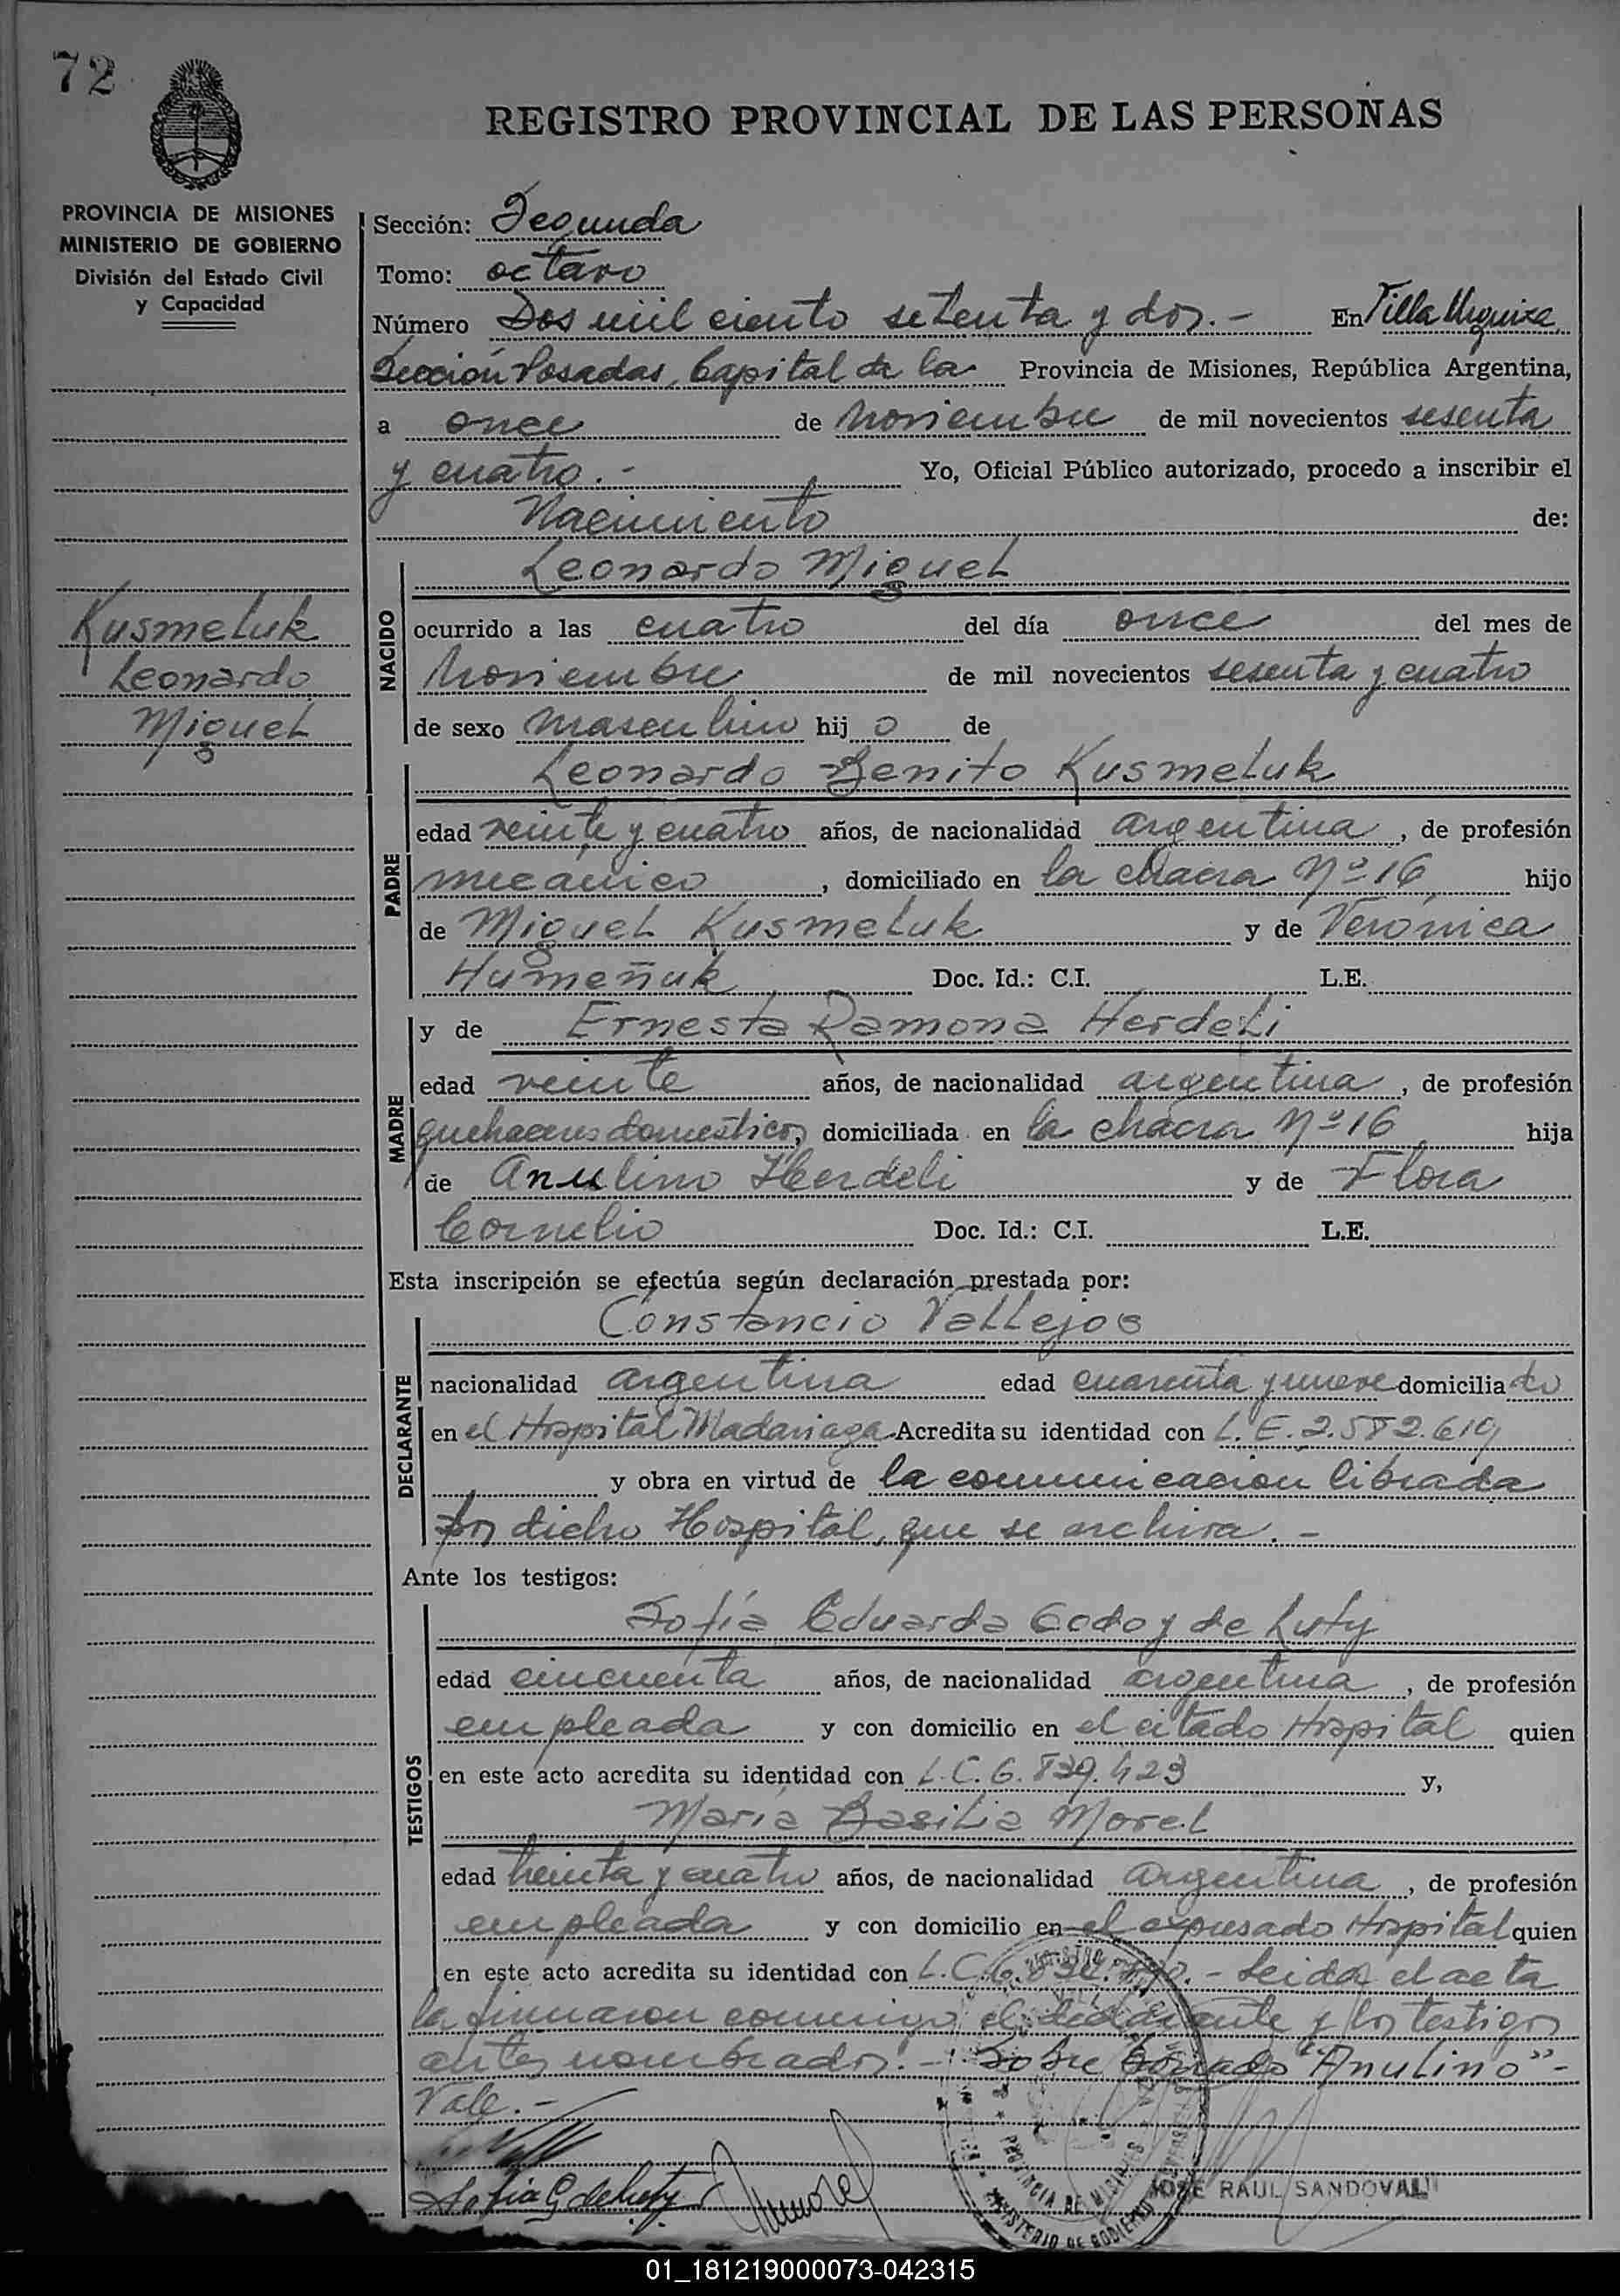 72
REGISTRO PROVINCIAL DE LAS PERSONAS
PROVINCIA DE MISIONES
MINISTERIO DE GOBIERNO
División del Estado Civil
y Capacidad
Sección: Segunda
Tomo: octavo
Número Dos mil ciento setenta y dos.- En Villa Urquiza
Sección Posadas, Capital de la Provincia de Misiones, República Argentina,
a once de Noviembre de mil novecientos sesenta
y cuatro.- Yo, Oficial Público autorizado, procedo a inscribir el
Nacimiento de:
Leonardo Miguel
Kusmeluk
Leonardo
Miguel
NACIDO
ocurrido a las cuatro del día once del mes de
Noviembre de mil novecientos sesenta y cuatro
de sexo masculino hijo de
Leonardo Benito Kusmeluk
PADRE
edad veinte y cuatro años, de nacionalidad argentina, de profesión
mecánico, domiciliado en la chacra Nº 16 hijo
de Miguel Kusmeluk y de Verónica
Humeñuk Doc. Id.: C.I. L.E.
y de Ernesta Ramona Herdeli
MADRE
edad veinte años, de nacionalidad argentina, de profesión
quehaceres domésticos, domiciliada en la chacra Nº 16, hija
de Anulino Herdeli y de Flora
Cornelio Doc. Id.: C.I. L.E.
Esta inscripción se efectúa según declaración prestada por:
Constancio Vallejos
DECLARANTE
nacionalidad argentina edad cuarenta y nueve domiciliado
en el Hospital Madariaga Acredita su identidad con L.E. 2.582.619,
y obra en virtud de la comunicación librada
por dicho Hospital, que se archiva.-
Ante los testigos:
Sofía Eduarda Godoy de Luty
TESTIGOS
edad cincuenta años, de nacionalidad argentina, de profesión
empleada y con domicilio en el citado Hospital quien
en este acto acredita su identidad con L.C. 6.839.423 y,
María Basilia Morel
edad treinta y cuatro años, de nacionalidad argentina, de profesión
empleada y con domicilio en el expresado Hospital quien
en este acto acredita su identidad con L.C. - Leida el acta
la firmaron conmigo el declarante y los testigos
antes nombrados.- Sobre borrado "Anulino"-
Vale.-
Sofia G de Luty
Morel
PROVINCIA DE MISIONES
MINISTERIO DE GOBIERNO
JOSE RAUL SANDOVAL
01_181219000073-042315